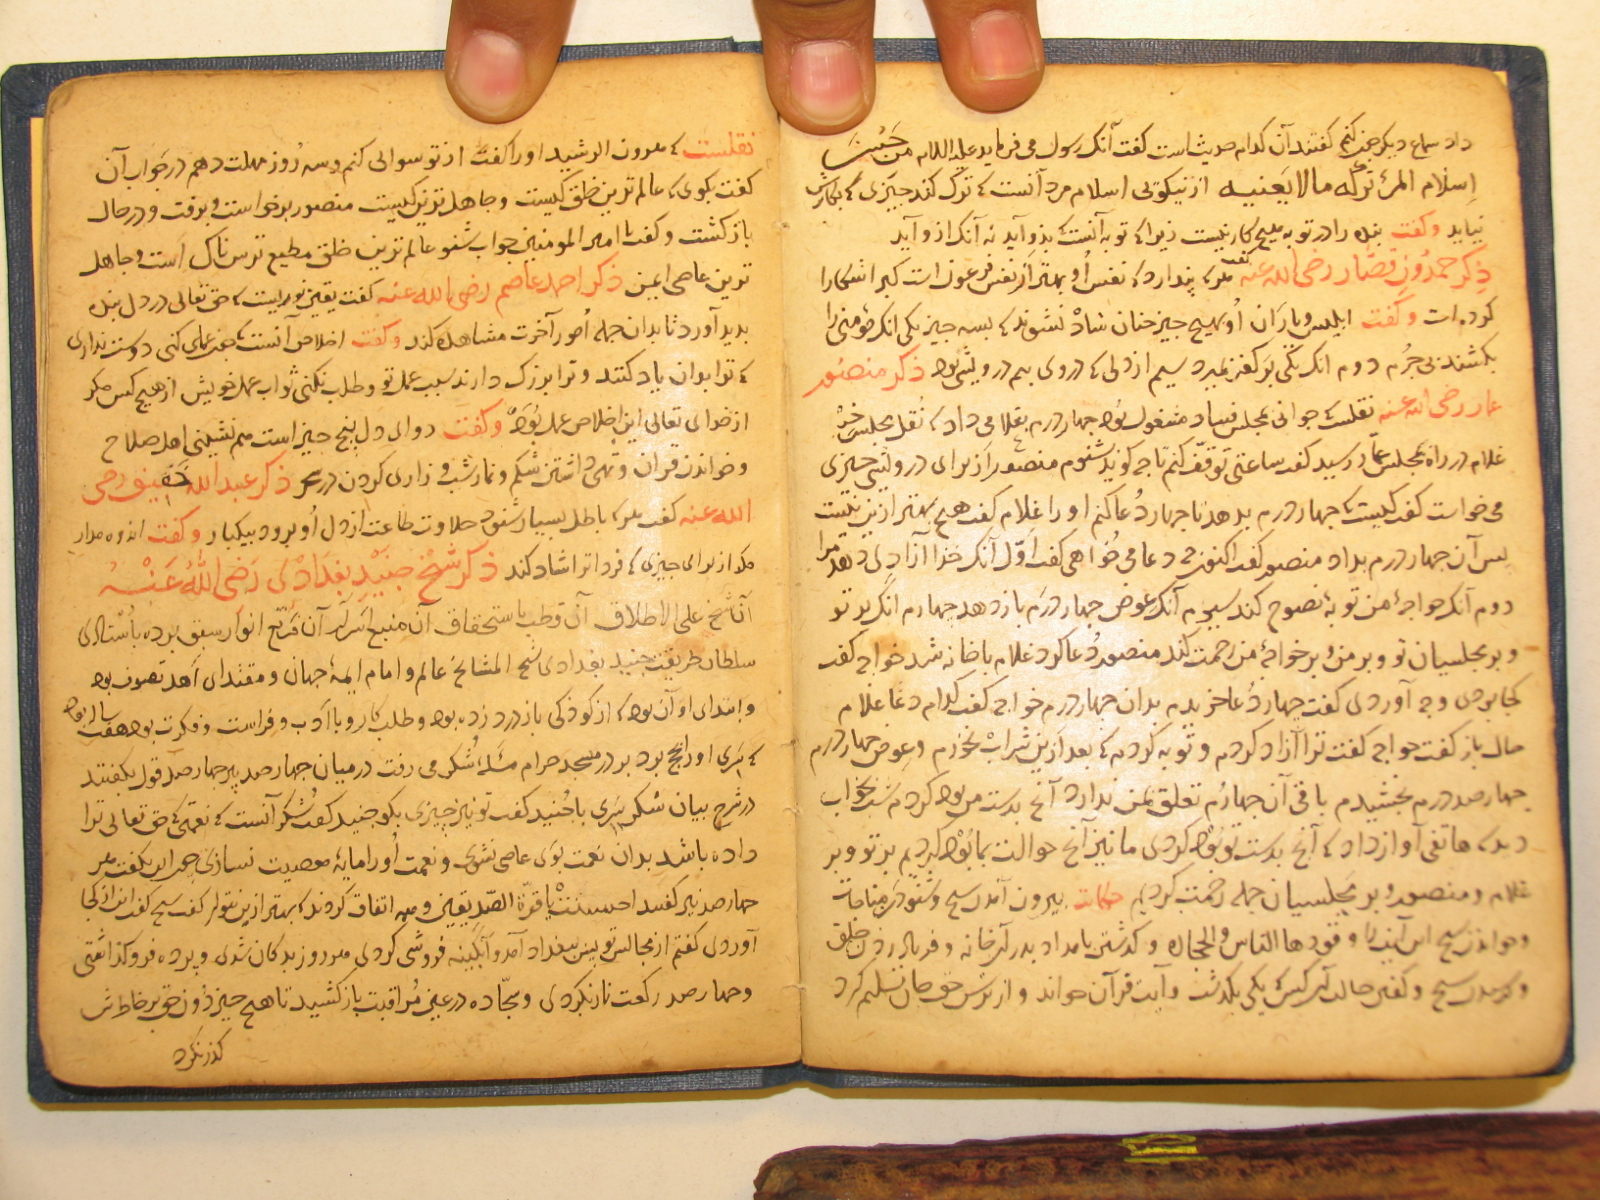 داد سماع دیگر ختم کنم گفتند آن کدام حدیث است گفت آنک رسول می فرماید علیه السلام من حُسْن
اِسلام المرٔ ترکه مالا یَعنیه از نیکوئی اسلام مرد آنست که ترک کند چیزی که بکارش
نیاید و گفت بنده را در توبه هیچ کار نیست زیرا که توبه آنست که بدو آید نه آنک ازو آید
ذِکر حمدُونِ قصّار رضی الله عنه گفت هرکه پندارد که نفس اُو بهتر از نفس فرعون است کبر اشکارا
کرده است و گفت ابلیس و یاران اُو بهیچ چیز چنان شاد نشوند که بسه چیز یکی انک مؤمنی را
بکشند بی جُرم دوم انک یکی بر کفر بمیرد سیم از دلی که در وی بیم درویشی بود ذکر منصُور
عمار رضی الله عنه نقلست که جوانی بمجلس فساد مشغول بود چهار درم بغلامی داد که نُقل مجلس خر
غلام در راه بمجلس عمّار رسید گفت ساعتی توقف کنم تا چه گوید شنوم منصور از برای درویشی چیزی
می خواست گفت کیست که چهار درم بدهد تا چهار دُعا کنم او را غلام گفت هیچ بهتر ازین نیست
پس آن چهار درم بداد منصور گفت اکنون چه دعا می خواهی گفت اوّل آنک خدا آزادی دهد مرا
دوم آنک خواجهٔ من توبهٔ نصوح کند سیوم آنک عوض چهار درم باز دهد چهارم انک بر تو
و بر مجلسیان تو و بر من و بر خواجهٔ من رحمت کند منصور دُعا کرد غلام با خانه شد خواجه گفت
کجا بودی و چه آوردی گفت چهار دُعا خریدم بدان چهار درم خواجه گفت کدام دعا غلام
حال باز گفت خواجه گفت ترا آزاد کردم و توبه کردم که بعد ازین شراب نخورم و عوض چهار درم
چهار صد درم بخشیدم باقی آن چهارُم تعلق بمن ندارد آنچ بدست من بود کردم شب بخواب
دید که هاتفی آواز داد که آنچ بدست تو بُوَد کردی ما نیز آنچ حوالت بما بُوَد کردیم بر تو و بر
غلام و منصور و بر مجلسیان جمله رحمت کردیم حکایت بیرون آمد شیخ و شنود در مناجات
و خواندن شیخ این آیت را و قودها النّاس والحجارة و گذشتن بامداد بدر آن خانه و فریاد زدن خلق
و شیخ و گفتن حال آن کس که یکی بگذشت و آیت قرآن خواند و از ترس حق جان تسلیم کرد
نقلست که هرون الرشید او را گفت از تو سوالی کنم و سه روز مهلت دهم در جواب آن
گفت بگوی که عالم ترین خلق کیست و جاهل ترین کیست منصور برخواست و برفت و در حال
باز گشت و گفت یا امیر المومنین جواب شنو عالم ترین خلق مطیع ترس ناک است و جاهل
ترین عاصی ایمن ذکر احمد عاصم رضی الله عنه گفت یقین نوریست که حق تعالی در دل بنده
پدید آورد تا بدان جمله اُمور آخرت مشاهده کند و گفت اخلاص آنست که چون عملی کنی دوست نداری
که ترا بدان یاد کنند و ترا بزرگ دارند سبب عمل تو و طلب نکنی ثواب عمل خویش از هیچ کس مگر
از خدای تعالی این اخلاص عمل بُوَد و گفت دوای دل پنج چیز است هم نشینی اهل صلاح
و خواندن قرآن و تهی داشتن شکم و نماز شب و زاری کردن در سحر ذکر عبدالله خفیق رضی
الله عنه گفت هرکه باطل بسیار شنود حلاوت طاعت از دل اُو برود بیکبار و گفت اندوه مدار
مگر از برای چیزی که فردا ترا شاد کند ذکر شیخ جنید بغدادی رَضی الله عَنْهُ
آن شیخ علی الاطلاق آن قطب باستحقاق آن منبع اسرار آن مرتع انوار سبق برده باستادی
سلطان طریقت جنید بغدادی شیخ المشایخ عالم و امام ایمهٔ جهان و مقتدای اهل تصوف بود
و ابتدای او آن بود که از کودکی باز درد زده بود و طلب کار و با ادب و فراست و فکرت بود هفت ساله بود
که سَری او را بحج برد در مسجد حرام مسئلهٔ شکر می رفت در میان چهار صد پیر چهار صد قول بگفتند
در شرح بیان شکر سَری با جُنید گفت تو نیز چیزی بگو جنید گفت شکر آنست که نعمتی که حق تعالی ترا
داده باشد بدان نعمت بوی عاصی نشوی و نعمت اُو را مایهٔ معصیت نسازی چون این بگفت هر
چهار صد پیر گفتند احسنت یا قُرّة الصّدیقین و همه اتفاق کردند که بهتر ازین نتوان گفت شیخ گفت این از کجا
آوردی گفتم از مجالس تو پس ببغداد آمد و آبگینه فروشی کردی هر روز بدکان شدی و پرده فرو گذاشتی
و چهار صد رکعت نماز بکردی و سجّاده در عین مُراقبت باز کشید تا هیچ چیز دُون حق بر خاطرش
گذر نکرد